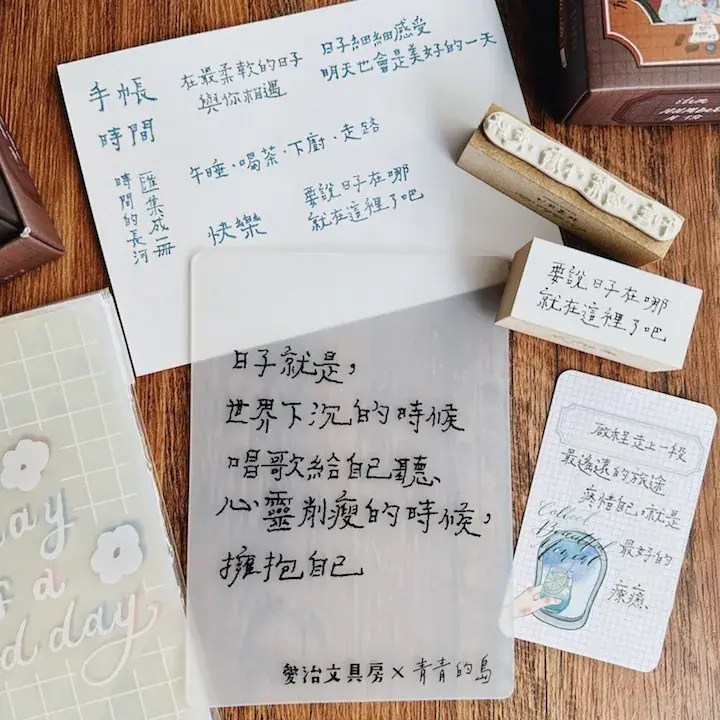 手帳
時間
在最柔軟的日子
與你相遇
日子細細感受
明天也會是美好的一天
午睡、喝茶、下廚、走路
匯集成一冊
時間的長河
快樂
要說日子在哪
就在這裡了吧
要說日子在哪
就在這裡了吧
日子就是,
世界下沉的時候
唱歌給自己聽、
心靈削瘦的時候,
擁抱自己
愛治文具房×青青的島
啟程走上一段
最遙遠的旅途
疼惜自己,就是
最好的
療癒
Collect
Beautiful
a
day